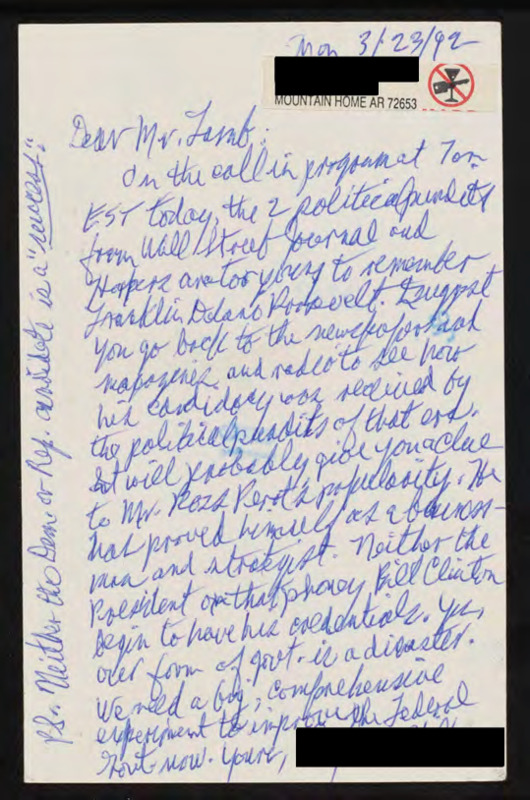 Mon 3/23/92
MOUNTAIN HOME AR 72653
Dear Mr. Lamb:
On the call in program at 7am
EST today, the 2 political pundits
from Wall Street Journal and
Harpers are too young to remember
Franklin Delano Roosevelt. I suggest
you go back to the newspapers and
magazines and radio to see how
his candidacy was received by
the political pundits of that era.
It will probably give you a clue
to Mr. Ross Perot's popularity. He
has proved himself as a business-
man and strategist. Neither the
President or that phoney Bill Clinton
begin to have his credentials. Yes,
our form of govt. is a disaster.
We need a big, comprehensive
experiment to improve the Federal
Govt now. Yours,
P.S. Neither the Dem. or Rep. candidate is a "newest".